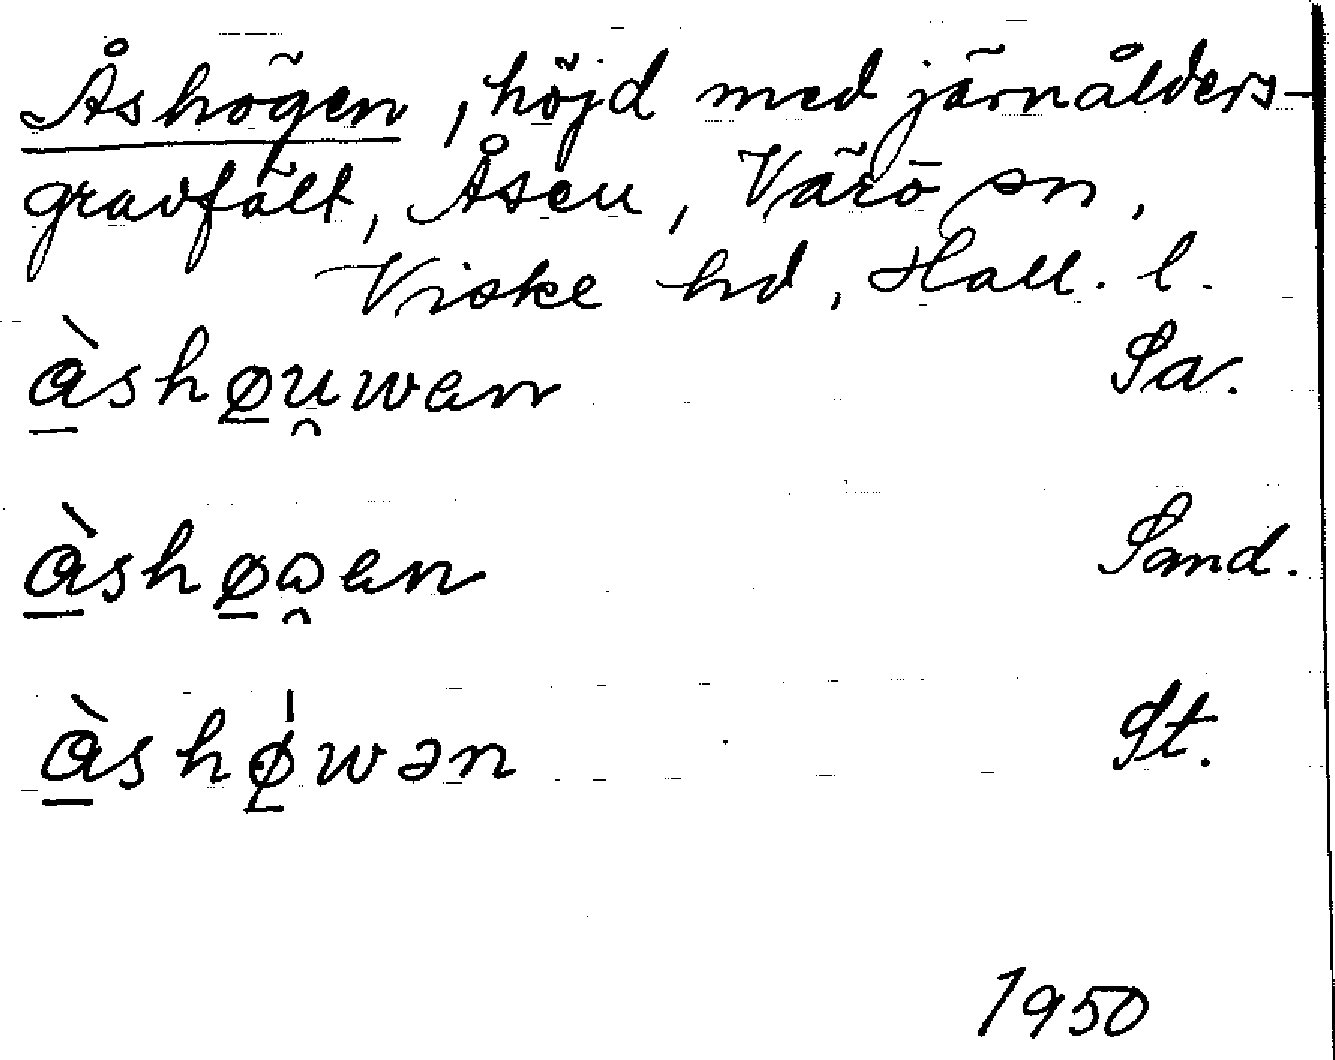 Åshögen, höjd med järnålders-
gravfält, Åsen, Värö sn,
Viske hd, Hall. l.
à̲shø̲u̯wan Sa.
à̲shø̲ω̯an Sand.
à̲shø̲̍wən St.
1950